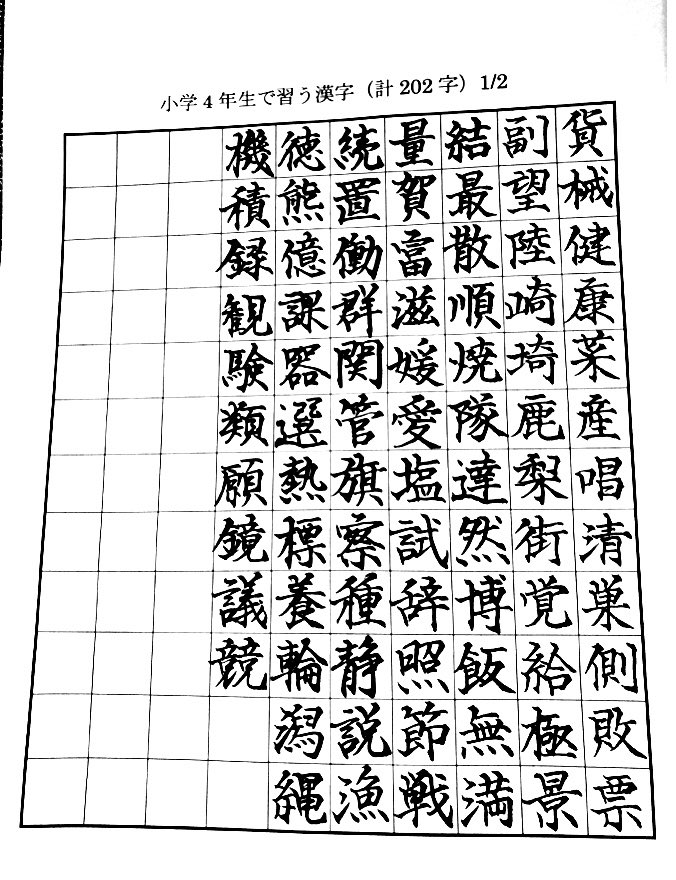 小学4年生で習う漢字（計202字）1/2
貨械健康菜産唱清巣側敗票
副望陸崎埼鹿梨街覚給極景
結最散順焼隊達然博飯無満
量賀富滋媛愛塩試辞照節戦
続置働群関管旗察種静説漁
徳熊億課器選熱標養輪潟縄
機積録観験類願鏡議競